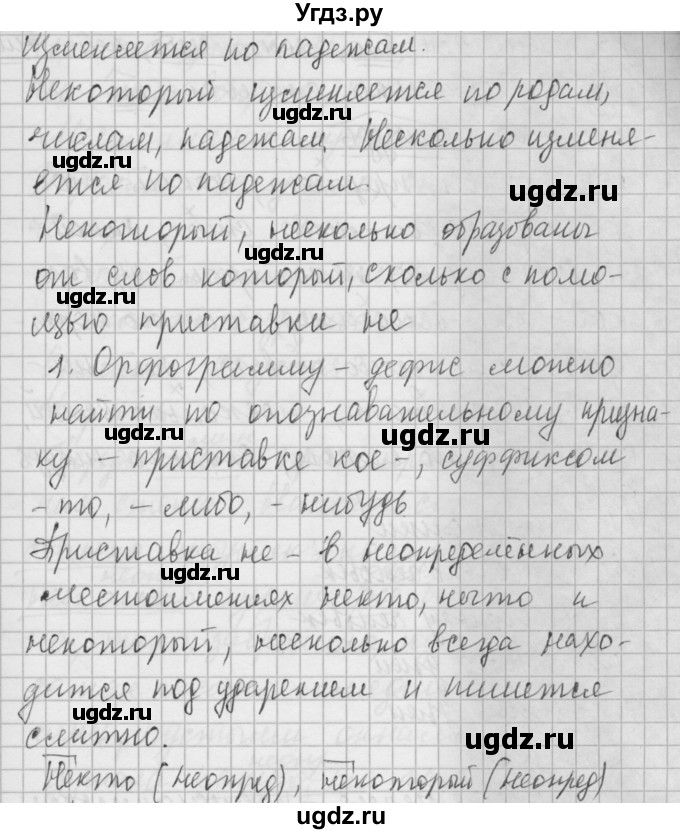 Угдз.ру
изменяется по падежам.
Некоторый изменяется по родам,
числам, падежам. Несколько изменя-
ется по падежам.
Некоторый, несколько образованы
от слов который, сколько с помо-
щью приставки не
1. Орфограмму - дефис можно
найти по опознавательному призна-
ку - приставке кое-, суффиксом
-то, -либо, -нибудь
Приставка не - в неопределённых
местоимениях некто, нечто и
некоторый, несколько всегда нахо-
дится под ударением и пишется
слитно.
Некто (неопред), некоторый (неопред)
ugdz.ru
ugdz.ru
ugdz.ru
ugdz.ru
ugdz.ru
ugdz.ru
ugdz.ru
ugdz.ru
ugdz.ru
ugdz.ru
ugdz.ru
ugdz.ru
ugdz.ru
ugdz.ru